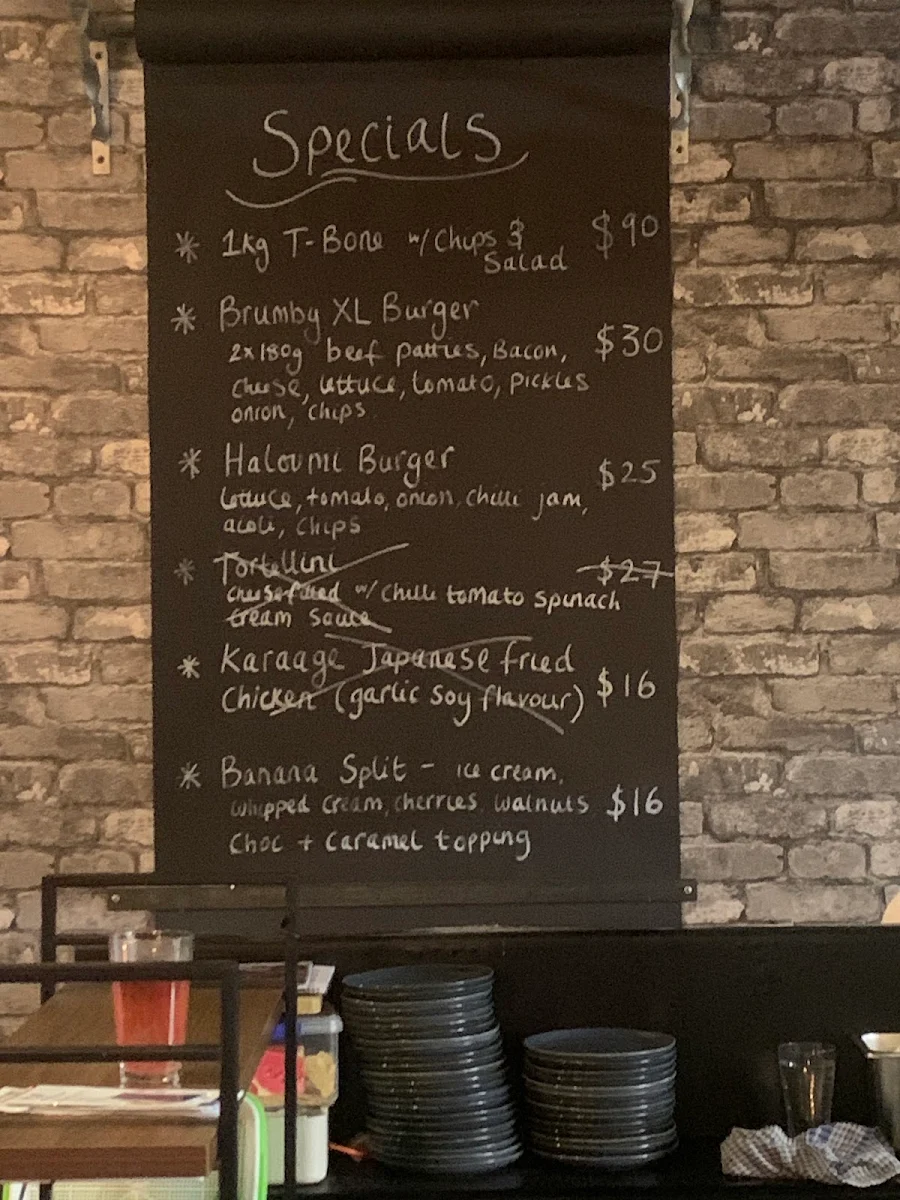 Specials
* 1kg T-Bone w/ Chips & $90
Salad
* Brumby XL Burger
2x180g beef patties, Bacon, $30
cheese, lettuce, tomato, pickles
onion, chips
* Haloumi Burger $25
lettuce, tomato, onion, chilli jam,
aioli, chips
* Tortellini $27
w/ Chilli tomato spinach
cream sauce
* Karaage Japanese fried
Chicken (garlic soy flavour) $16
* Banana Split - ice cream,
whipped cream, cherries, walnuts $16
Choc + caramel topping